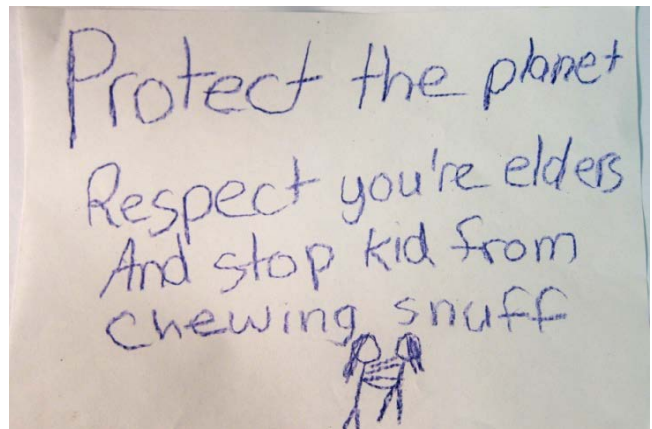 Protect the planet
Respect you're elders
And stop kid from
chewing snuff